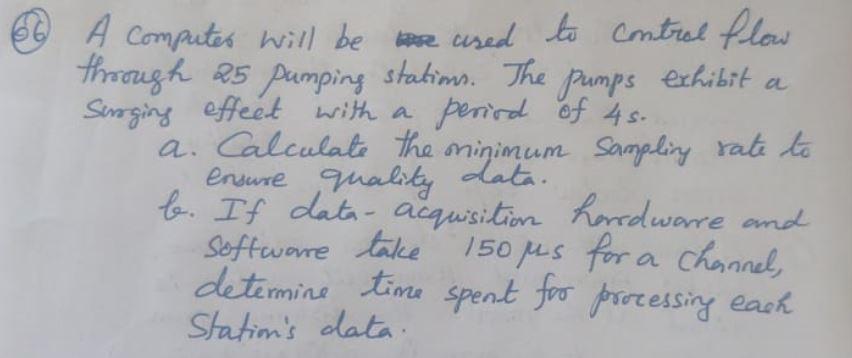 66 A Computer will be used to Control flow
through 25 pumping stations. The pumps exhibit a
Surging effect with a period of 4s.
a. Calculate the minimum Sampling rate to
ensure quality data.
b. If data-acquisition hardware and
Software take 150 μs for a channel,
determine time spent for processing each
Station's data.